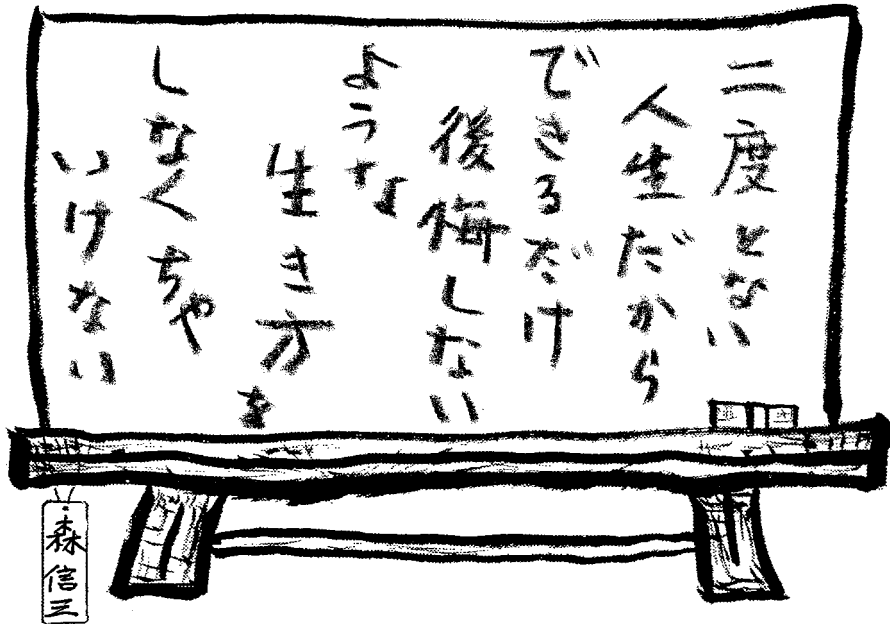 二度とない
人生だから
できるだけ
後悔しない
ような
生き方を
しなくちゃ
いけない
森信三